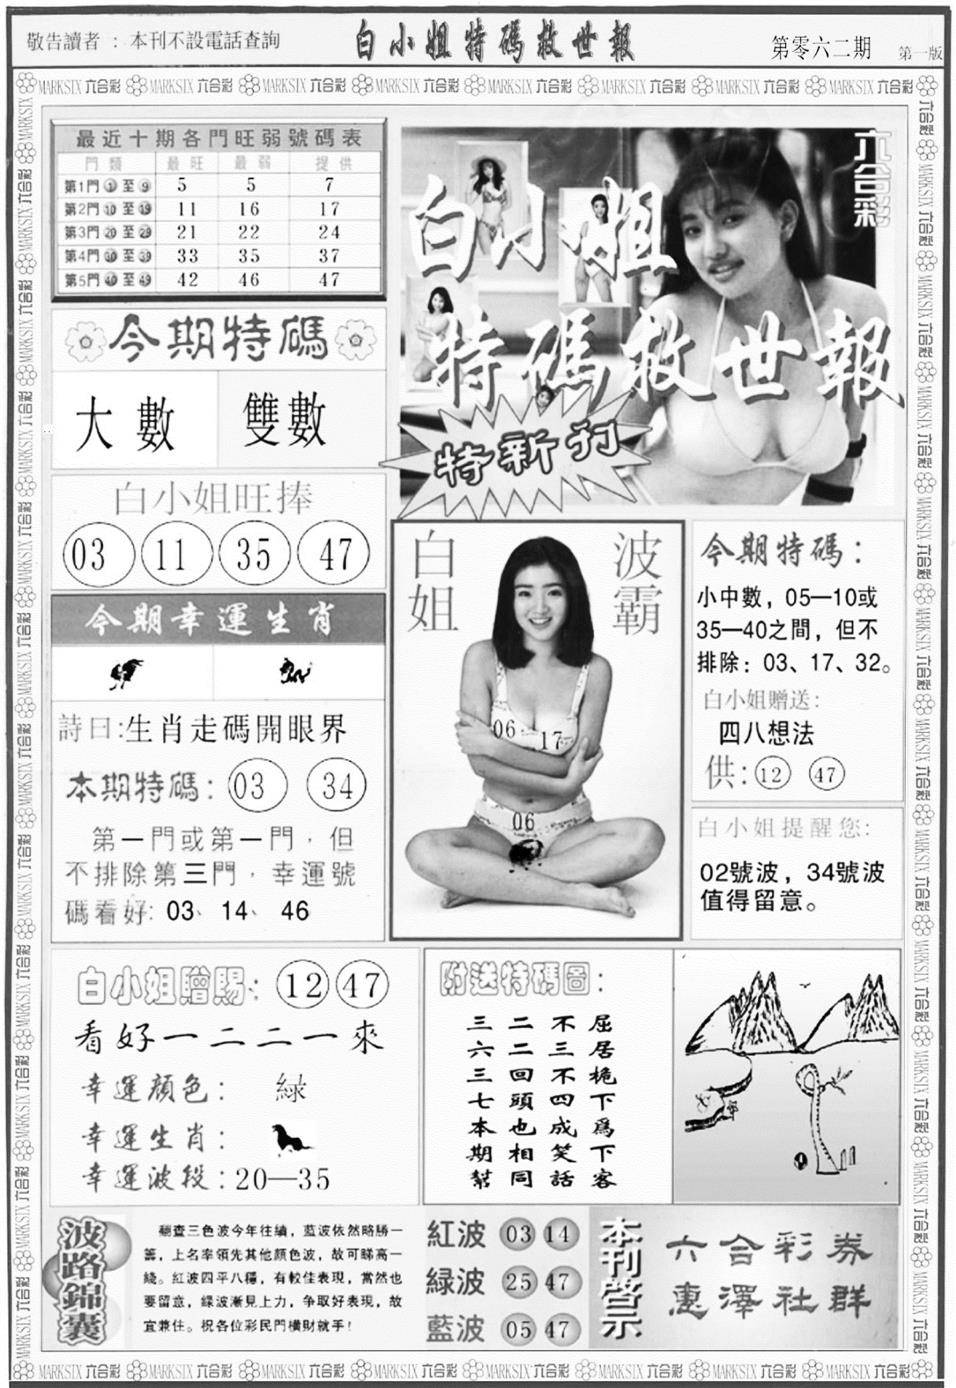 敬告讀者：本刊不設電話查詢
白小姐特碼救世報
第零六二期
第一版
最近十期各門旺弱號碼表
門類 最旺 最弱 提供
第1門 1 至 9 5 5 7
第2門 10 至 19 11 16 17
第3門 20 至 29 21 22 24
第4門 30 至 39 33 35 37
第5門 40 至 49 42 46 47
六合彩
白小姐
特碼救世報
特新刊
今期特碼
大數 雙數
白小姐旺捧
03 11 35 47
今期幸運生肖
詩曰:生肖走碼開眼界
本期特碼: 03 34
第一門或第一門，但
不排除第三門，幸運號
碼看好: 03、14、46
白姐
波霸
06 17
06
今期特碼：
小中數，05—10或
35—40之間，但不
排除：03、17、32。
白小姐贈送:
四八想法
供: 12 47
白小姐提醒您:
02號波，34號波
值得留意。
白小姐贈賜: 12 47
看好一二二一來
幸運顏色: 綠
幸運生肖:
幸運波段:20—35
附送特碼圖:
屈居桅下為下客
不三不四成笑話
二二回頭也相同
三六三七本期幫
波路錦囊
翻查三色波今年往績，藍波依然略勝一
籌，上名率領先其他顏色波，故可睇高一
綫。紅波四平八穩，有較佳表現，當然也
要留意，綠波漸見上力，争取好表現，故
宜兼住。祝各位彩民門橫財就手！
紅波 03 14
綠波 25 47
藍波 05 47
本刊啓示
六合彩券
惠澤社群
MARKSIX 六合彩